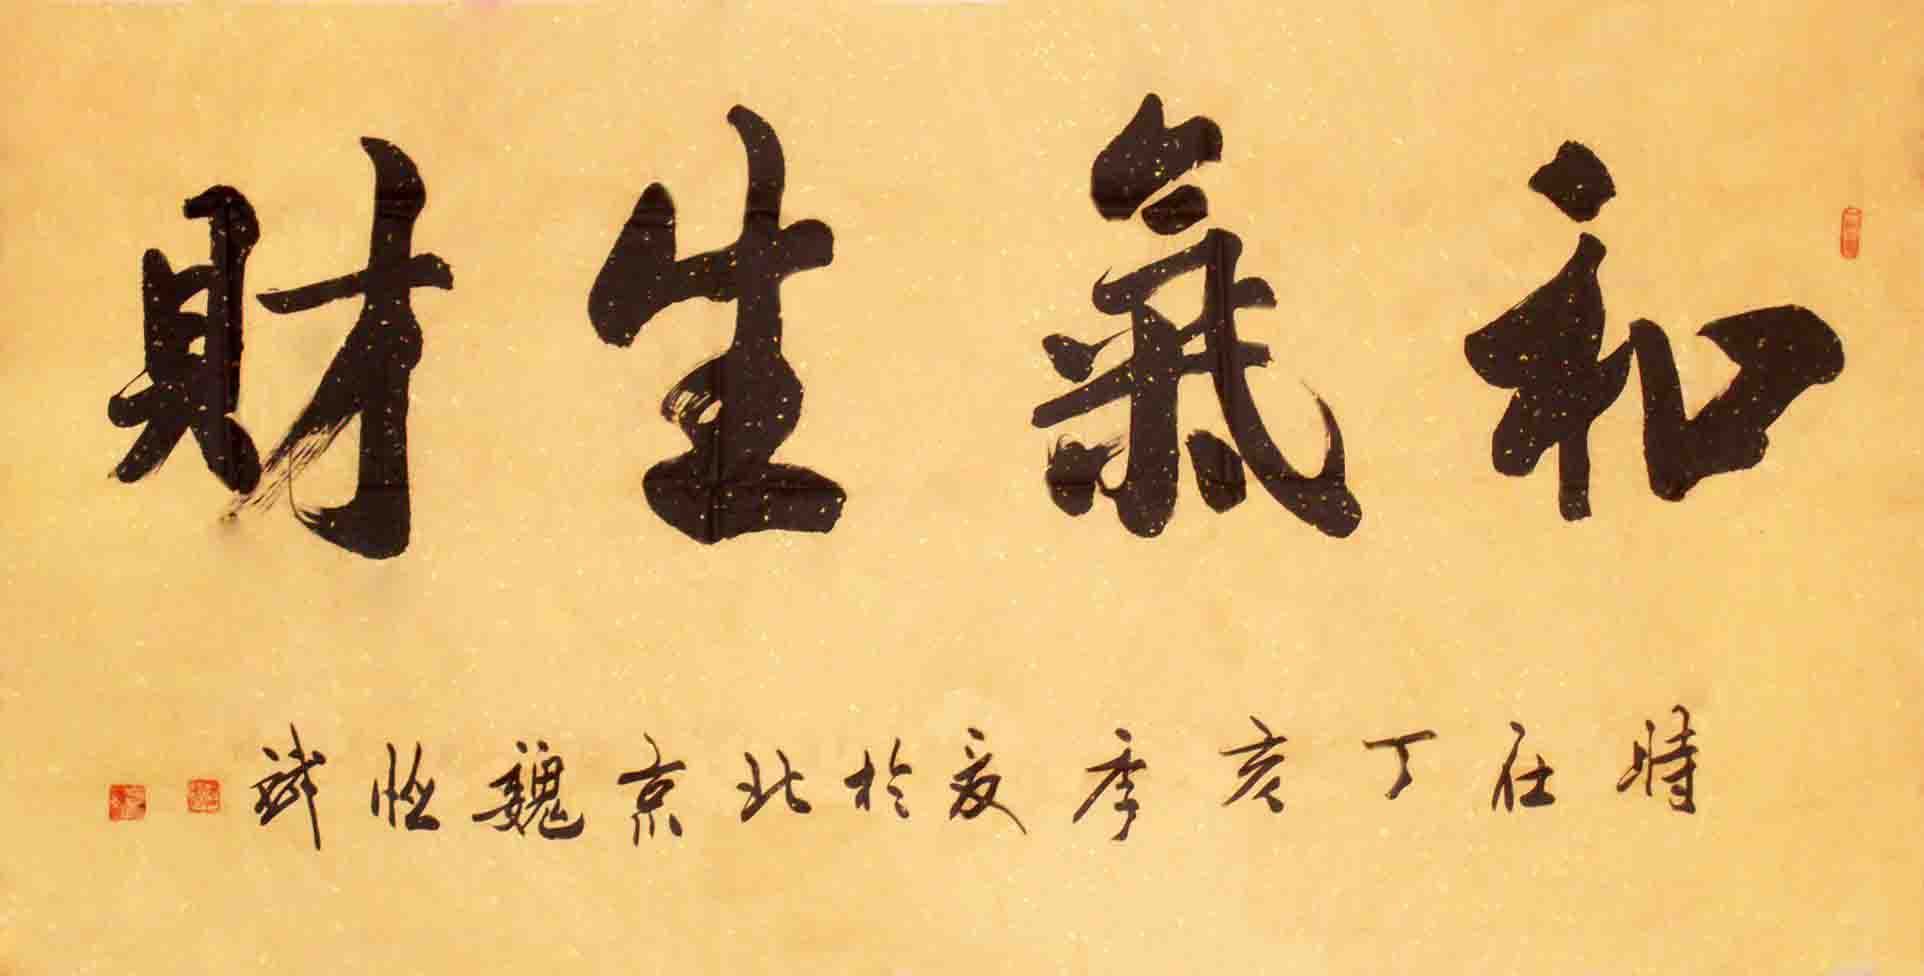 和氣生財
時在丁亥季夏於北京魏恒斌